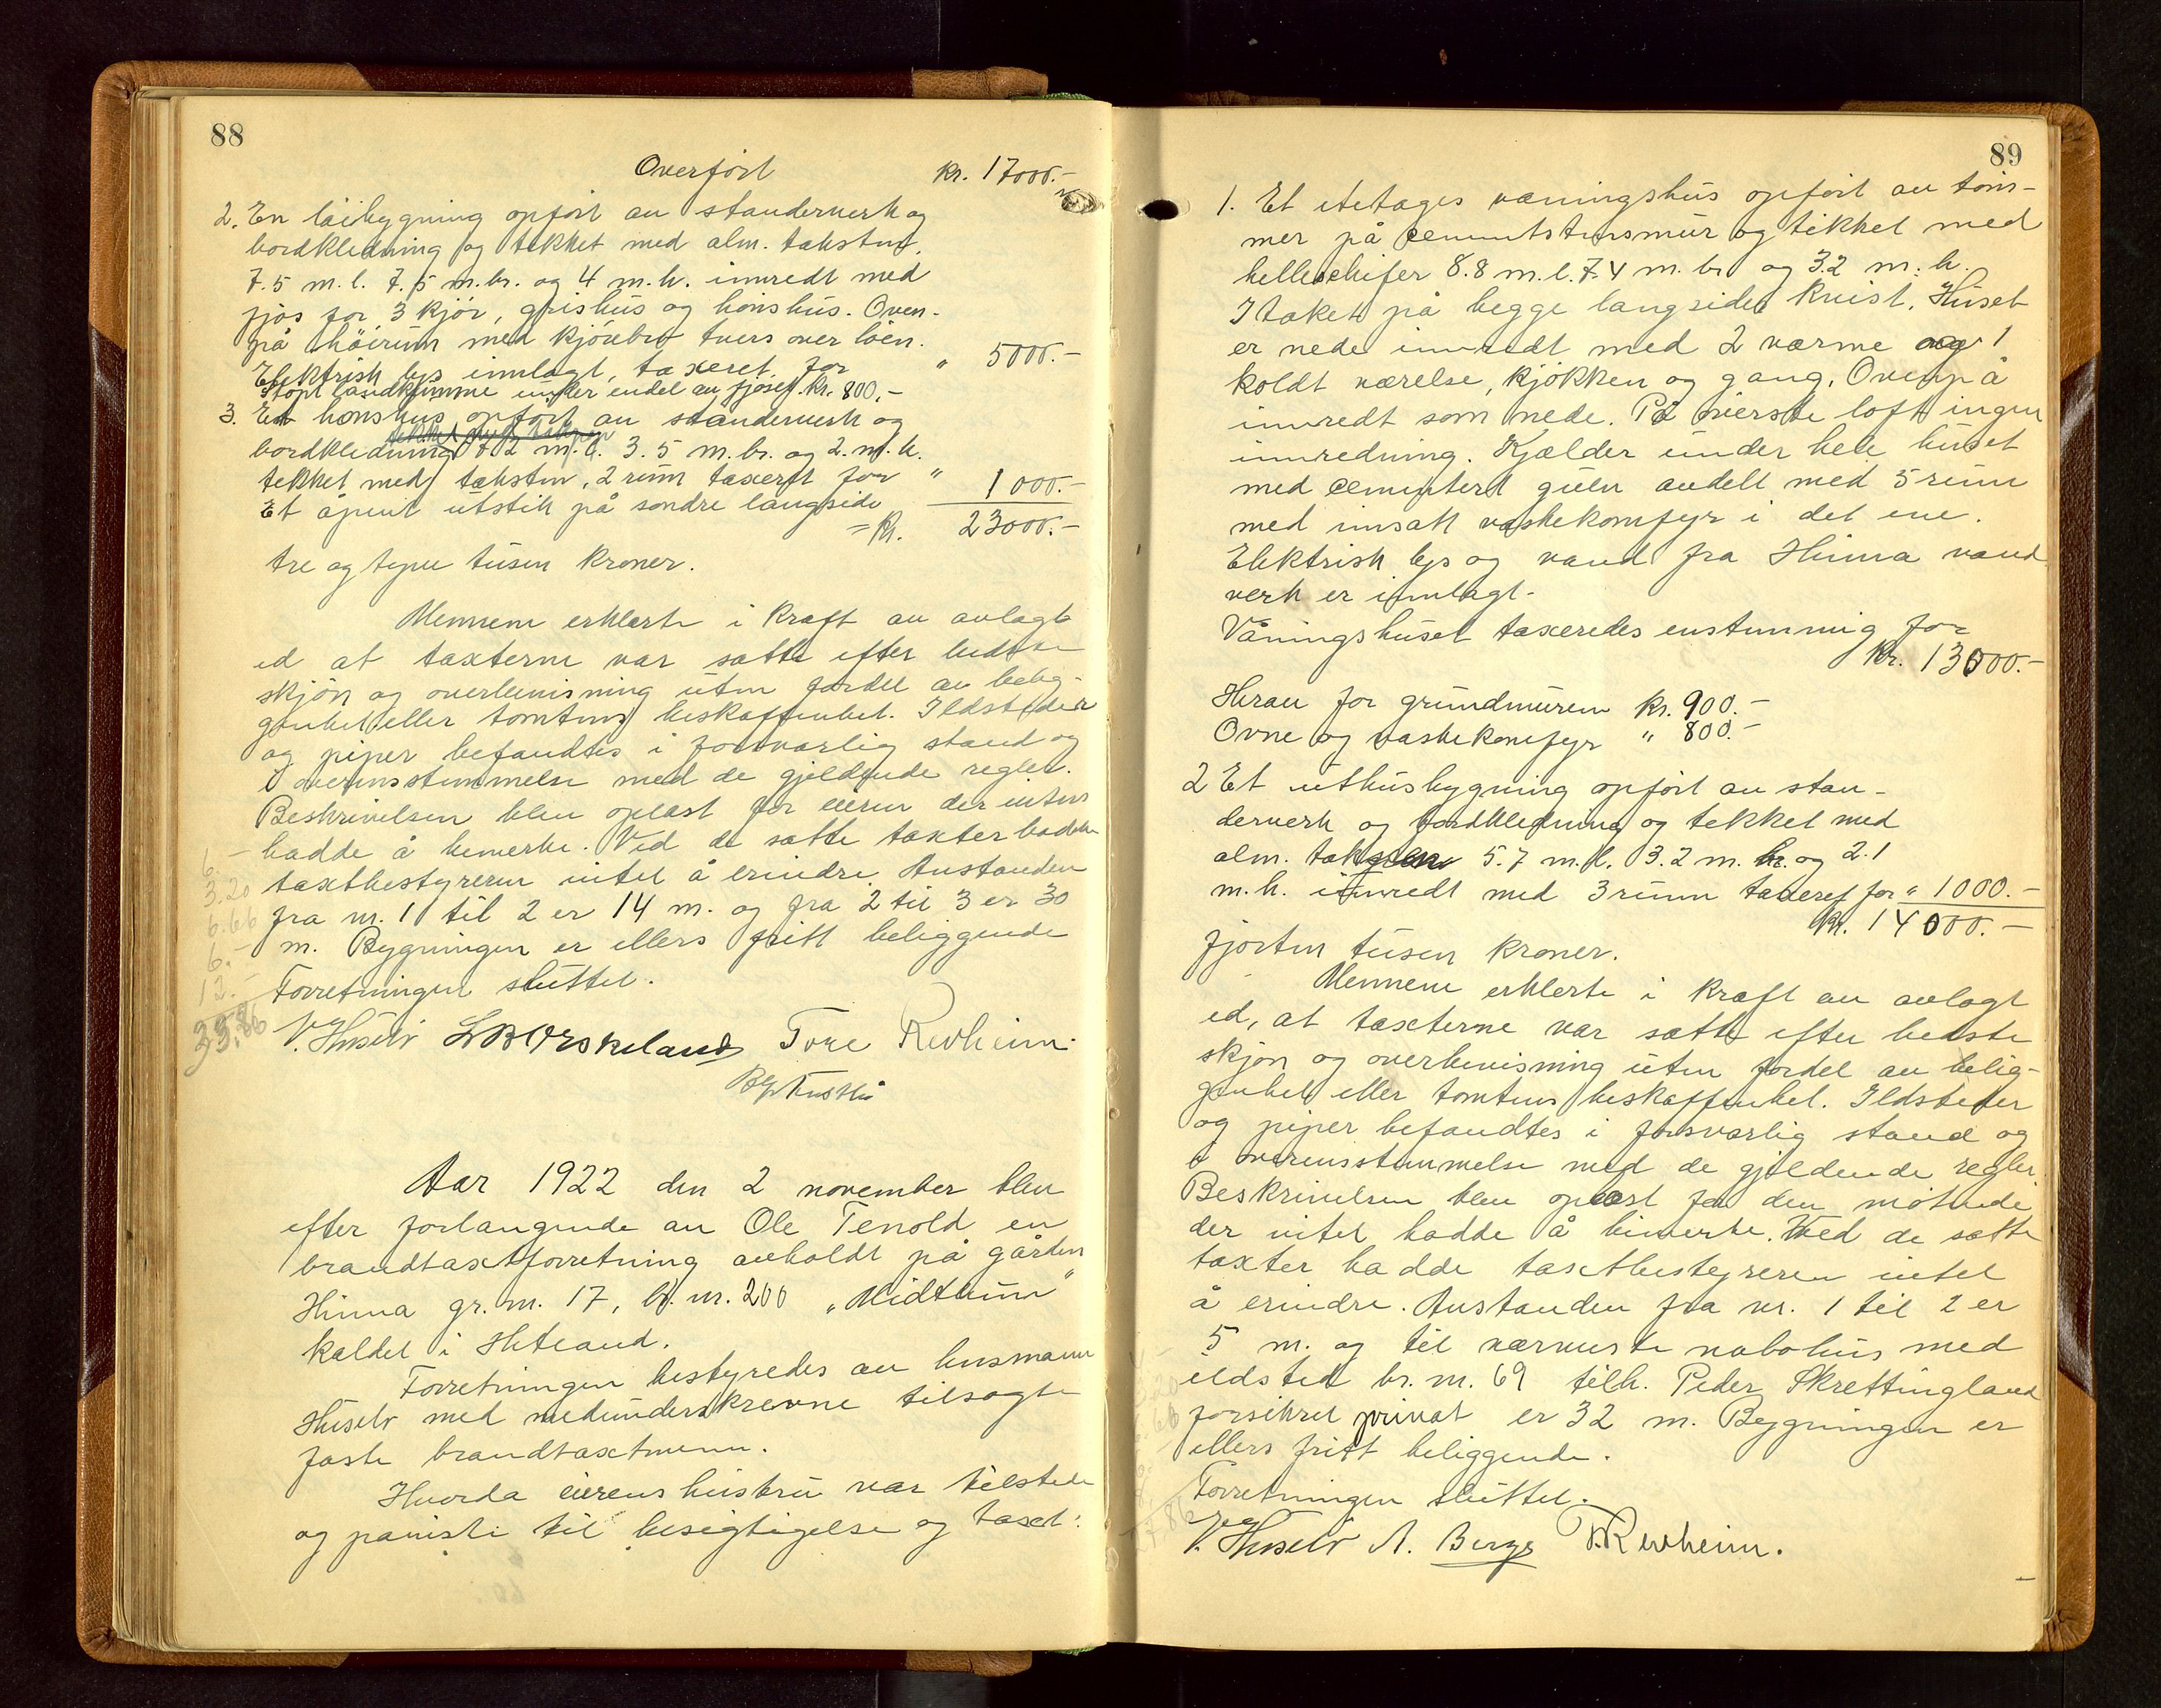 88
Overført kr. 17000.-
2. En løibygning opført av standerverk og
bordkledning og tekket med alm. takstin.
7.5 m. l. 7.5 m. br. og 4 m. h. innredt med
fjøs for 3 kjør, grishus og hønshus. Oven-
på høirum med kjørebro tvers over løen.
Elektrisk lys innlagt, taxeret for " 5000.-
Støpt landkumme under endel av fjøset. kr. 800.-
3. Et hønshus opført av standerverk og
bordkledning 7.2 m. l. 3.5 m. br. og 2. m. h.
tekket med takstin, 2 rum taxeret for " 1000.-
Et åpent utstik på søndre langside
= kr. 23000.-
tre og tyve tusen kroner.
Mennene erklerte i kraft av avlagt
ed at taxterne var satte efter bedste
skjøn og overbevisning uten fordel av belig-
genhet eller tomtens beskaffenhet. Ildsteder
og piper befandtes i forsvarlig stand og
i overensstemmelse med de gjeldende regler.
Beskrivelsen blev oplæst for eieren der intet
hadde å bemerke. Ved de satte taxter hadde
taxtbestyreren intet å erindre. Avstanden
fra nr. 1 til 2 er 14 m. og fra 2 til 3 er 30
m. Bygningen er ellers fritt beliggende
Forretningen sluttet.
6.-
3.20
6.66
6.-
12.-
33.86
V. Huselv L B Orskeland Tore Revheim.
Aar 1922 den 2 november blev
efter forlangende av Ole Tenold en
brandtaxtforretning avholdt på gården
Hinna gr. nr. 17, br. nr. 200 „Midttunn"
kaldet i Hetland.
Forretningen bestyredes av lensmann
Huselv med medunderskrevne tilsagte
faste brandtaxtmenn.
Hvorda eierens hustru var tilstede
og paviste til besigtigelse og taxt:
89
1. Et etetages våningshus opført av tøm-
mer på cementstensmur og tekket med
helleschifer 8.8 m. l. 7.4 m. br. og 3.2 m. h.
I taket på begge langsider kvist. Huset
er nede innredt med 2 varme og 1
koldt værelse, kjøkken og gang. Ovenpå
innredt som nede. På øverste loft ingen
innredning. Kjælder under hele huset
med cementert gulv avdelt med 5 rum
med innsatt vaskekomfyr i det ene.
Elektrisk lys og vand fra Hinna vand
verk er innlagt.
Våningshuset taxeredes enstemmig for
kr. 13000.-
Herav for grundmuren kr. 900.-
Ovne og vaskekomfyr " 800.-
2 Et uthusbygning opført av stan-
derverk og bordkledning og tekket med
alm. 5.7 m. l. 3.2 m. br. og 2.1
m. h. innredt med 3 rumm taxeret for " 1000.-
Kr. 14000.-
fjorten tusen kroner.
Mennene erklerte i kraft av avlagt
ed, at taxterne var satte efter bedste
skjøn og overbevisning uten fordel av belig-
genhet eller tomtens beskaffenhet. Ildsteder
og piper befandtes i forsvarlig stand og
i overensstemmelse med de gjeldende regler.
Beskrivelsen blev oplæst for den møtende
der intet hadde å bemerke. Ved de satte
taxter hadde taxtbestyreren intet
å erindre. Avstanden fra nr. 1 til 2 er
5 m. og til nærmeste nabohus med
ildsted br. nr. 69 tilh. Peder Skrettingland
forsikret privat er 32 m. Bygningen er
ellers fritt beliggende.
Forretningen sluttet.
V. Huselv A. Berge T. Revheim.